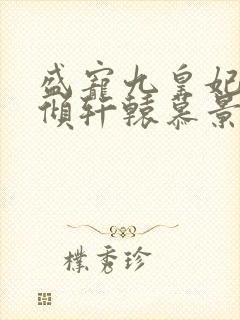 盛宠九皇妃
倾轩辕慕景
朴秀珍